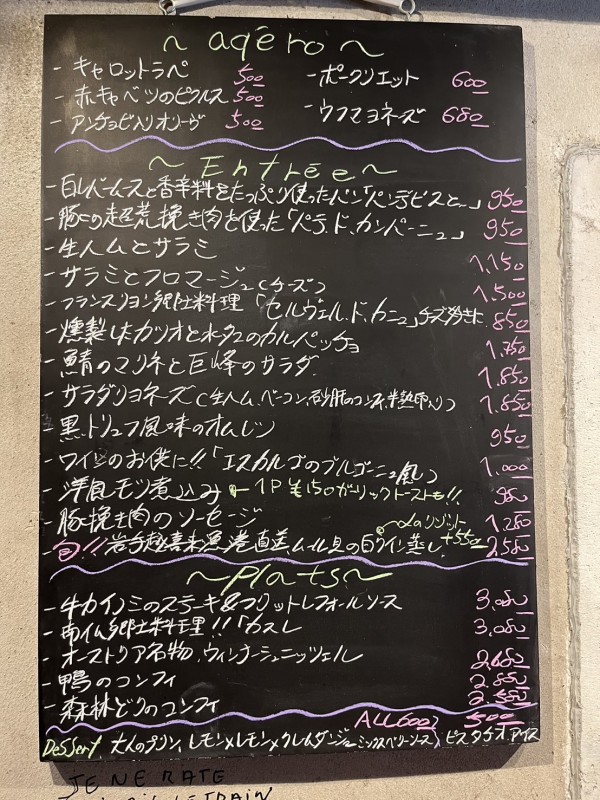 ~ apéro ~
- キャロットラペ 500 - ポークリエット 600
- 赤キャベツのピクルス 500
- アンチョビ入りオリーヴ 500 - ウフマヨネーズ 680
~ Entrée ~
と香辛料をたっぷり使ったパン「パンデピスと…」 950
- 豚の超荒挽き肉を使った「パテ.ド.カンパーニュ」 950
- 生ハムとサラミ 1,150
- サラミとフロマージュ(チーズ) 1,500
- フランスリヨン郷土料理「セルヴェル.ド.カニュ」 850
- 燻製したカツオと水タコのカルパッチョ 1,750
- 鯖のマリネと巨峰のサラダ. 1,850
- サラダリヨネーズ(生ハム.ベーコン.砂肝のコンフィ.半熟卵入り) 1,850
- 黒トリュフ風味のオムレツ 950
- ワインのお供に!!「エスカルゴのブルゴーニュ風」 1,000
- 洋風モツ煮込み ← 1P ¥150ガーリックトーストも!! 980
- 豚挽き肉のソーセージ 1,280
〆のリゾット +550
旬!! 岩手越喜来漁港直送.ムール貝の白ワイン蒸し 2,580
~ Plats ~
- 牛カイノミのステーキ&フリットレフォールソース 3,080
- 南仏郷土料理!!「カスレ 3,080
- オーストリア名物.ウィンナーシュニッツェル 2,680
- 鴨のコンフィ 2,880
- 森林どりのコンフィ 2,580
ALL600 500
Dessert 大人のプリン, レモン×レモン×クレムダンジュ ミックスベリーソース, ピスタチオアイス
JE NE RATE
TRAIN